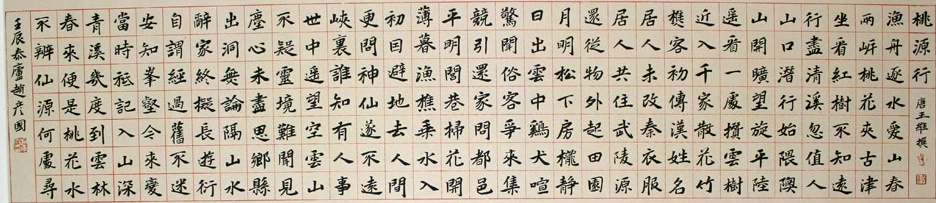 桃源行 唐王維撰
漁舟逐水愛山春
兩岍桃花夾古津
坐看紅樹不知遠
行盡清溪忽值人
山口潛行始隈隩
山開曠望旋平陸
遥看一處攢雲樹
近入千家散花竹
樵客初傳漢姓名
居人未改秦衣服
居人共住武陵源
還從物外起田園
月明松下房櫳静
日出雲中鷄犬喧
驚聞俗客爭來集
競引還家問都邑
平明閭巷掃花開
薄暮漁樵乘水入
初因避地去人間
更問神仙遂不還
峽裏誰知有人事
世中遥望空雲山
不疑靈境難聞見
塵心未盡思鄉縣
出洞無論隔山水
辭家終擬長遊衍
自謂經過舊不迷
安知峯壑今來變
當時秖記入山深
青溪幾度到雲林
春來便是桃花水
不辨仙源何處尋
壬辰泰廬趙彦國